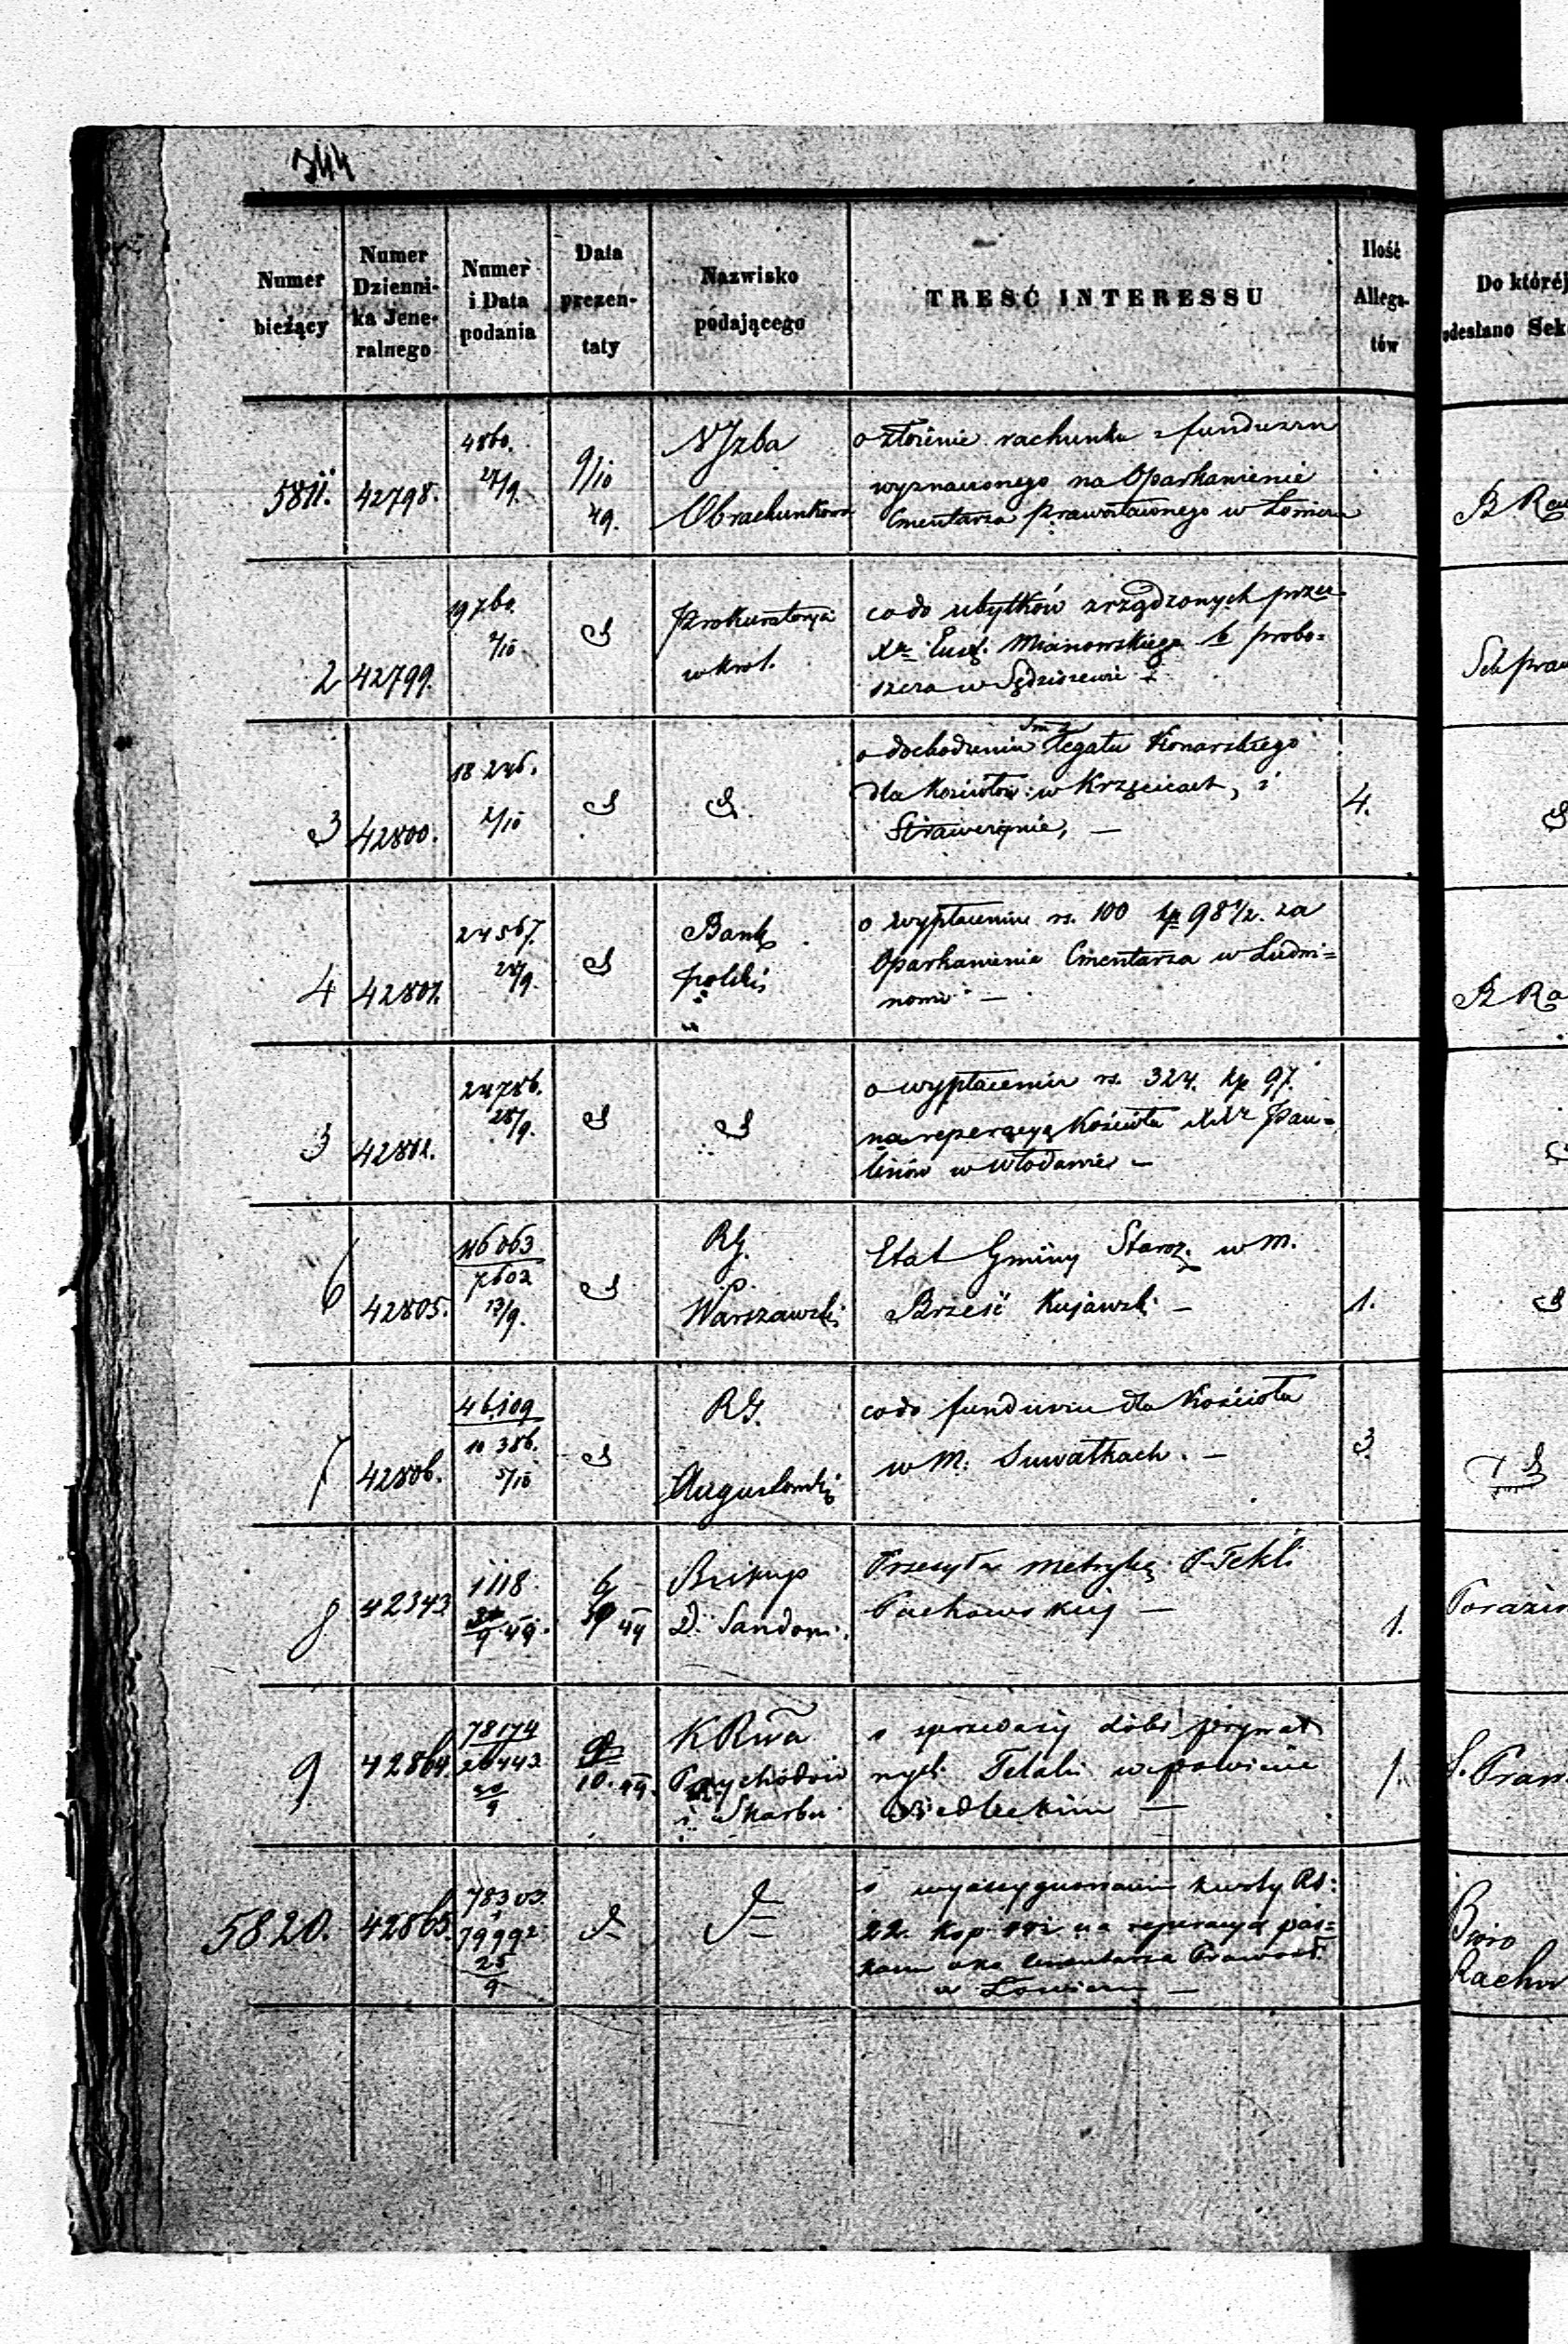 344
Numer bieżący
Numer Dzienni- ka Jene- ralnego
Numer i Data podania
Data prezen- taty
Nazwisko podającego
TREŚĆ INTERESSU
Ilość Allega- tów
Do której
odesłano Sek
5811. 42798. 4860. 27/9. 9/10 49. NIzba Obrachunkowa
o złożenie rachunku z funduszu
wyznaczonego na Oparkanienie
Cmentarza prawosławnego w Łowiczu
B Ra
2 42799. 19760. 2/10 Prokuratorya w Król.
co do ubytków zrządzonych przez
Xa Mianowskiego b probo=
szcza w Sędziszewie
Sek praw
3 42800. 18246. 2/10
o dochodzeniu Legatu Konarskiego
dla Kościołów w Krzęcicach, i
4.
4 42801. 24567. 28/9. Bank polski
o wypłaceniu rs. 100 kp 98 1/2. za
Oparkanienie Cmentarza w
B Ra
5 42802. 24786. 28/9.
o wypłaceniu rs. 324. kp 97.
na reperacyą Kościoła XXr Pau=
linów w Włodawie –
6 42805. 46063 7602 13/9. RG. Warszawski
Etat Gminy Staroz. w m.
Brześć Kujawski –
1.
7 42806. 46,109 10386. 5/10 RG. Augustowski
co do funduszu dla Kościoła
w M. Suwałkach. –
3
8 42343 1118. 9 49. Biskup D. Sandom.
Przesyła metrykę P. Tekli
Pachowskiej –
1.
9 42864. 78174 26443. 20/9 10. 49. K R Przychodów i Skarbu
o sprzedaży dóbr prywat
nych w powiecie
Siedleckim –
1
S. Praw
5820. 42865. 78303 79992 25/9
o wyasygnowanie kwoty Rs:
22. kop. na reperacyą par=
kanu oko cmentarza Prawosł.
w Łowiczu –
Biuro
Rachu